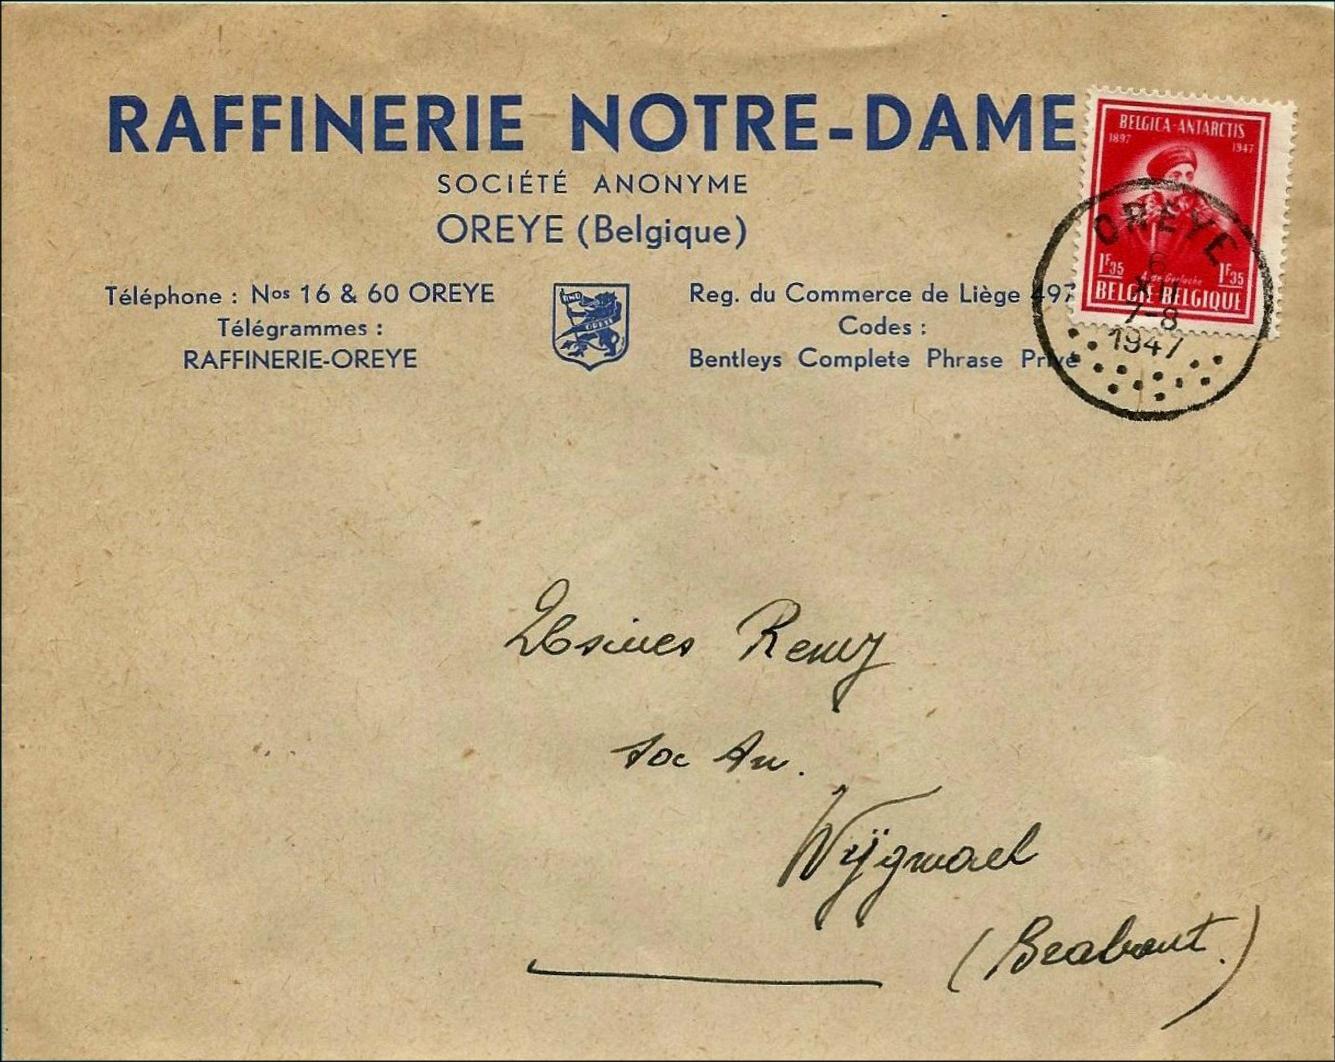 RAFFINERIE NOTRE-DAME
SOCIÉTÉ ANONYME
OREYE (Belgique)
Téléphone : Nos 16 & 60 OREYE
Télégrammes :
RAFFINERIE-OREYE
OREYE
Reg. du Commerce de Liège 497
Codes :
Bentleys Complete Phrase Privé
BELGICA-ANTARCTIS
1897 1947
A. de Gerlache
1F35 1F35
BELGIË-BELGIQUE
OREYE
6
7-8
1947
Usines Remy
Soc An.
Wÿgmael
(Brabant.)